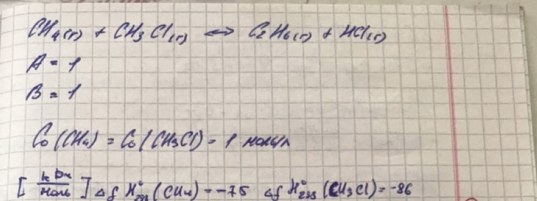 CH₄(г) + CH₃Cl(г) ⇔ C₂H₆(г) + HCl(г)
A = 1
B = 1
C₀(CH₄) = C₀(CH₃Cl) = 1 моль/л
[кДж/моль] ΔfH°₂₉₈(CH₄) = -75 ΔfH°₂₉₈(CH₃Cl) = -86